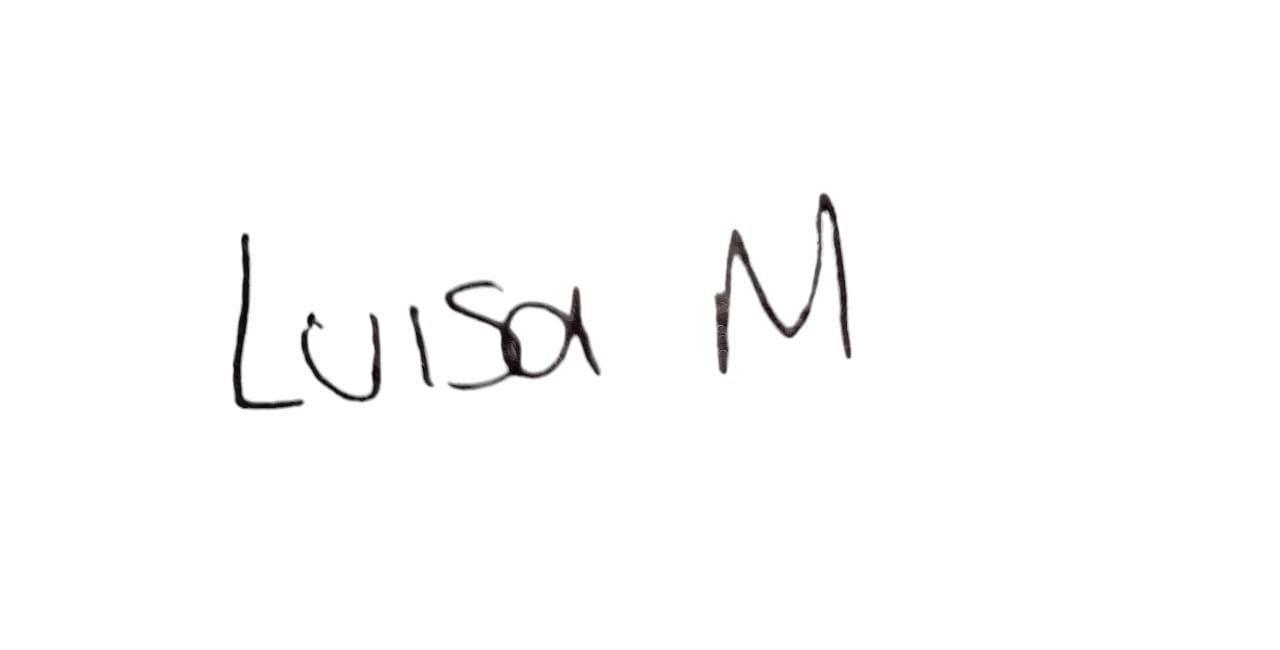 Luisa M